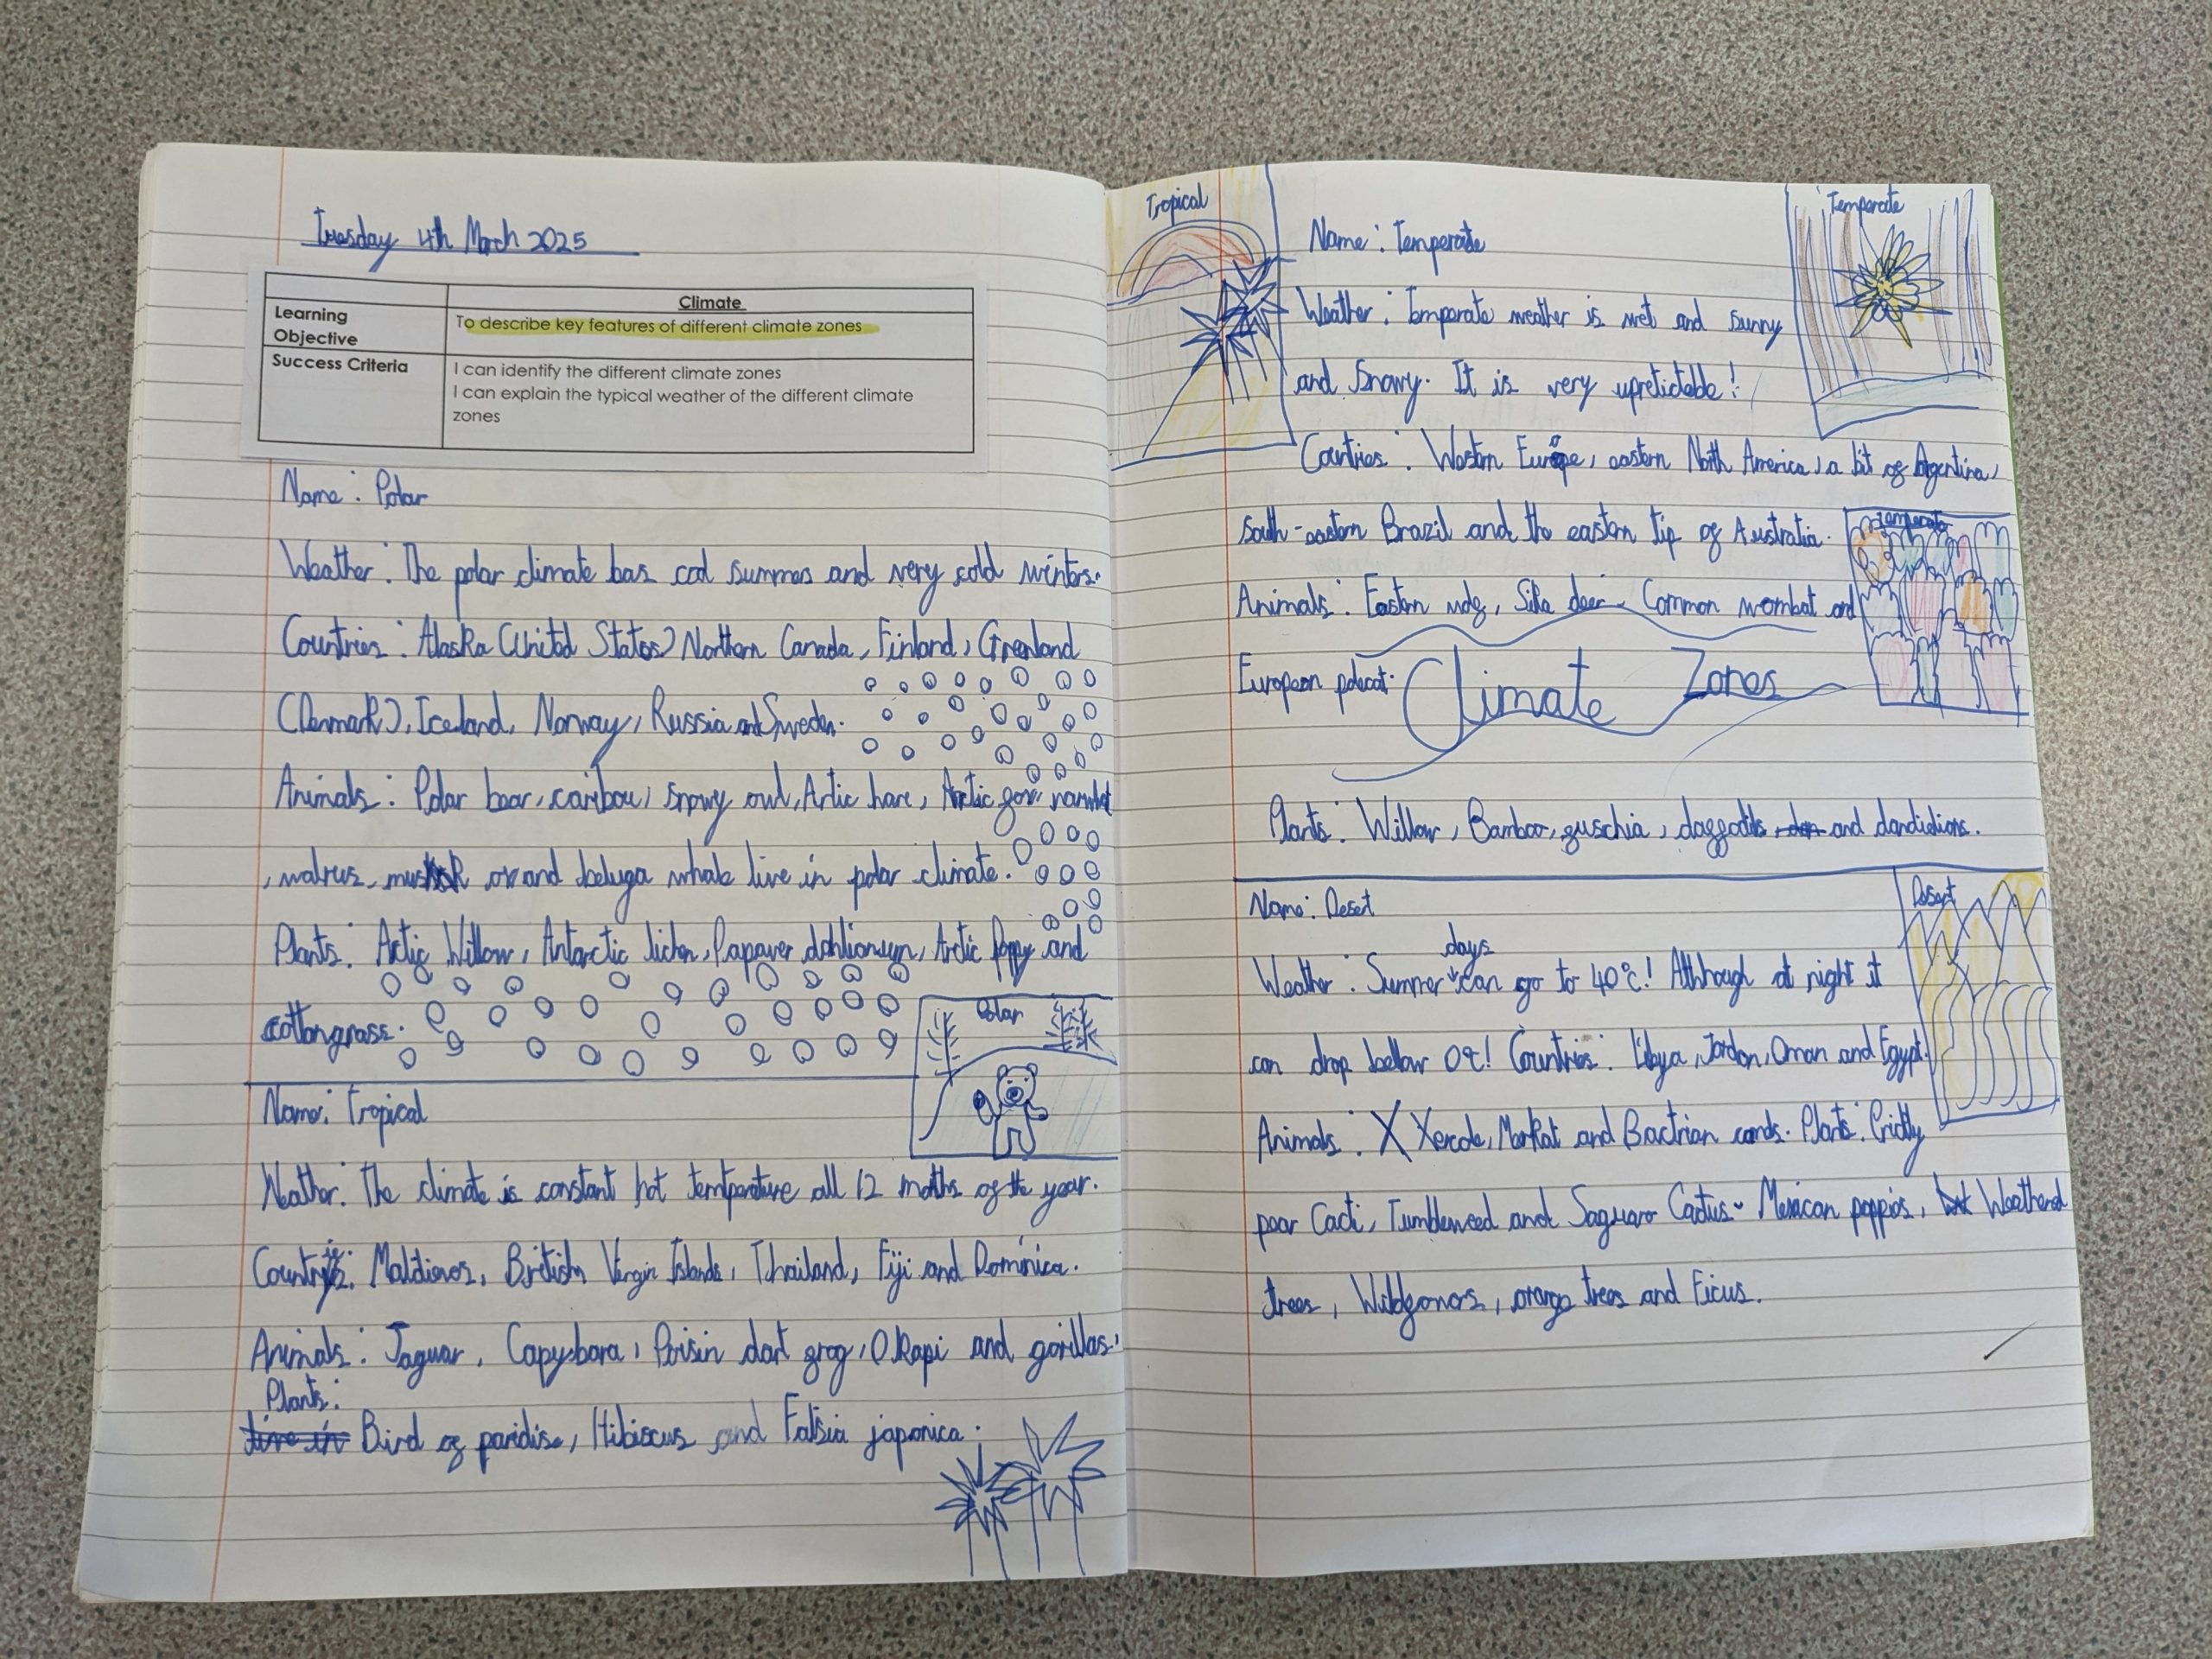 Tuesday 4th March 2025
Climate
Learning Objective
To describe key features of different climate zones
Success Criteria
I can identify the different climate zones
I can explain the typical weather of the different climate
zones
Name: Polar
Weather: The polar climate has cool summers and very cold winters.
Countries: Alaska (United States) Northern Canada, Finland, Greenland
(Denmark), Iceland, Norway, Russia and Sweden.
Animals: Polar bear, caribou, snowy owl, Artic hare, Arctic fox,
, walrus, musk ox and beluga whale live in polar climate.
Plants: Arctic Willow, Antarctic lichen, Papaver Arctic poppy and
cottongrass.
Polar
Name: Tropical
Weather: The climate is constant hot temtperature all 12 moths of the year.
Countries: Maldives, British Virgin Islands, Thailand, Fiji and Dominica.
Animals: Jaguar, Capybara, Poisin dart frog, Okapi and gorillas.
Plants:
live in Bird of paridise, Hibiscus and Fatsia japonica.
Tropical
Temperate
Name: Temperate
Weather: Temperate weather is wet and sunny
and snowy. It is very upretictable!
Countries: Western Europe, eastern North America, a bit of Argentina,
south-eastern Brazil and the eastern tip of Australia.
Temperate
Animals: Eastern Sika deer Common wombat and
European polecat.
Climate Zones
Plants: Willow, Bamboo, fuschia, daffodils and dandidions.
Name: Desert
Desert
days
Weather: Summer can go to 40°C! Although at night it
can drop bellow 0°c! Countries: Libya, Jordan, Oman and Egypt.
Animals: X Meerkat and Bactrian Plants: Prickly
pear Cacti, Tumbleweed and Saguaro Cactus. Mexican poppies, Weathered
trees, orange trees and Ficus.